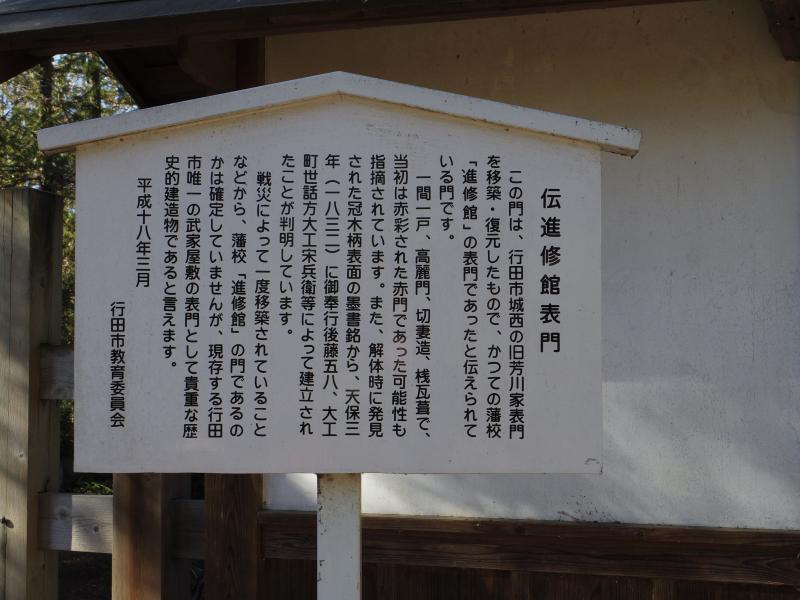 伝進修館表門
この門は、行田市城西の旧芳川家表門
を移築・復元したもので、かつての藩校
「進修館」の表門であったと伝えられて
いる門です。
一間一戸、高麗門、切妻造、桟瓦葺で、
当初は赤彩された赤門であった可能性も
指摘されています。また、解体時に発見
された冠木柄表面の墨書銘から、天保三
年（一八三二）に御奉行後藤五八、大工
町世話方大工宋兵衛等によって建立され
たことが判明しています。
戦災によって一度移築されていること
などから、藩校「進修館」の門であるの
かは確定していませんが、現存する行田
市唯一の武家屋敷の表門として貴重な歴
史的建造物であると言えます。
平成十八年三月
行田市教育委員会